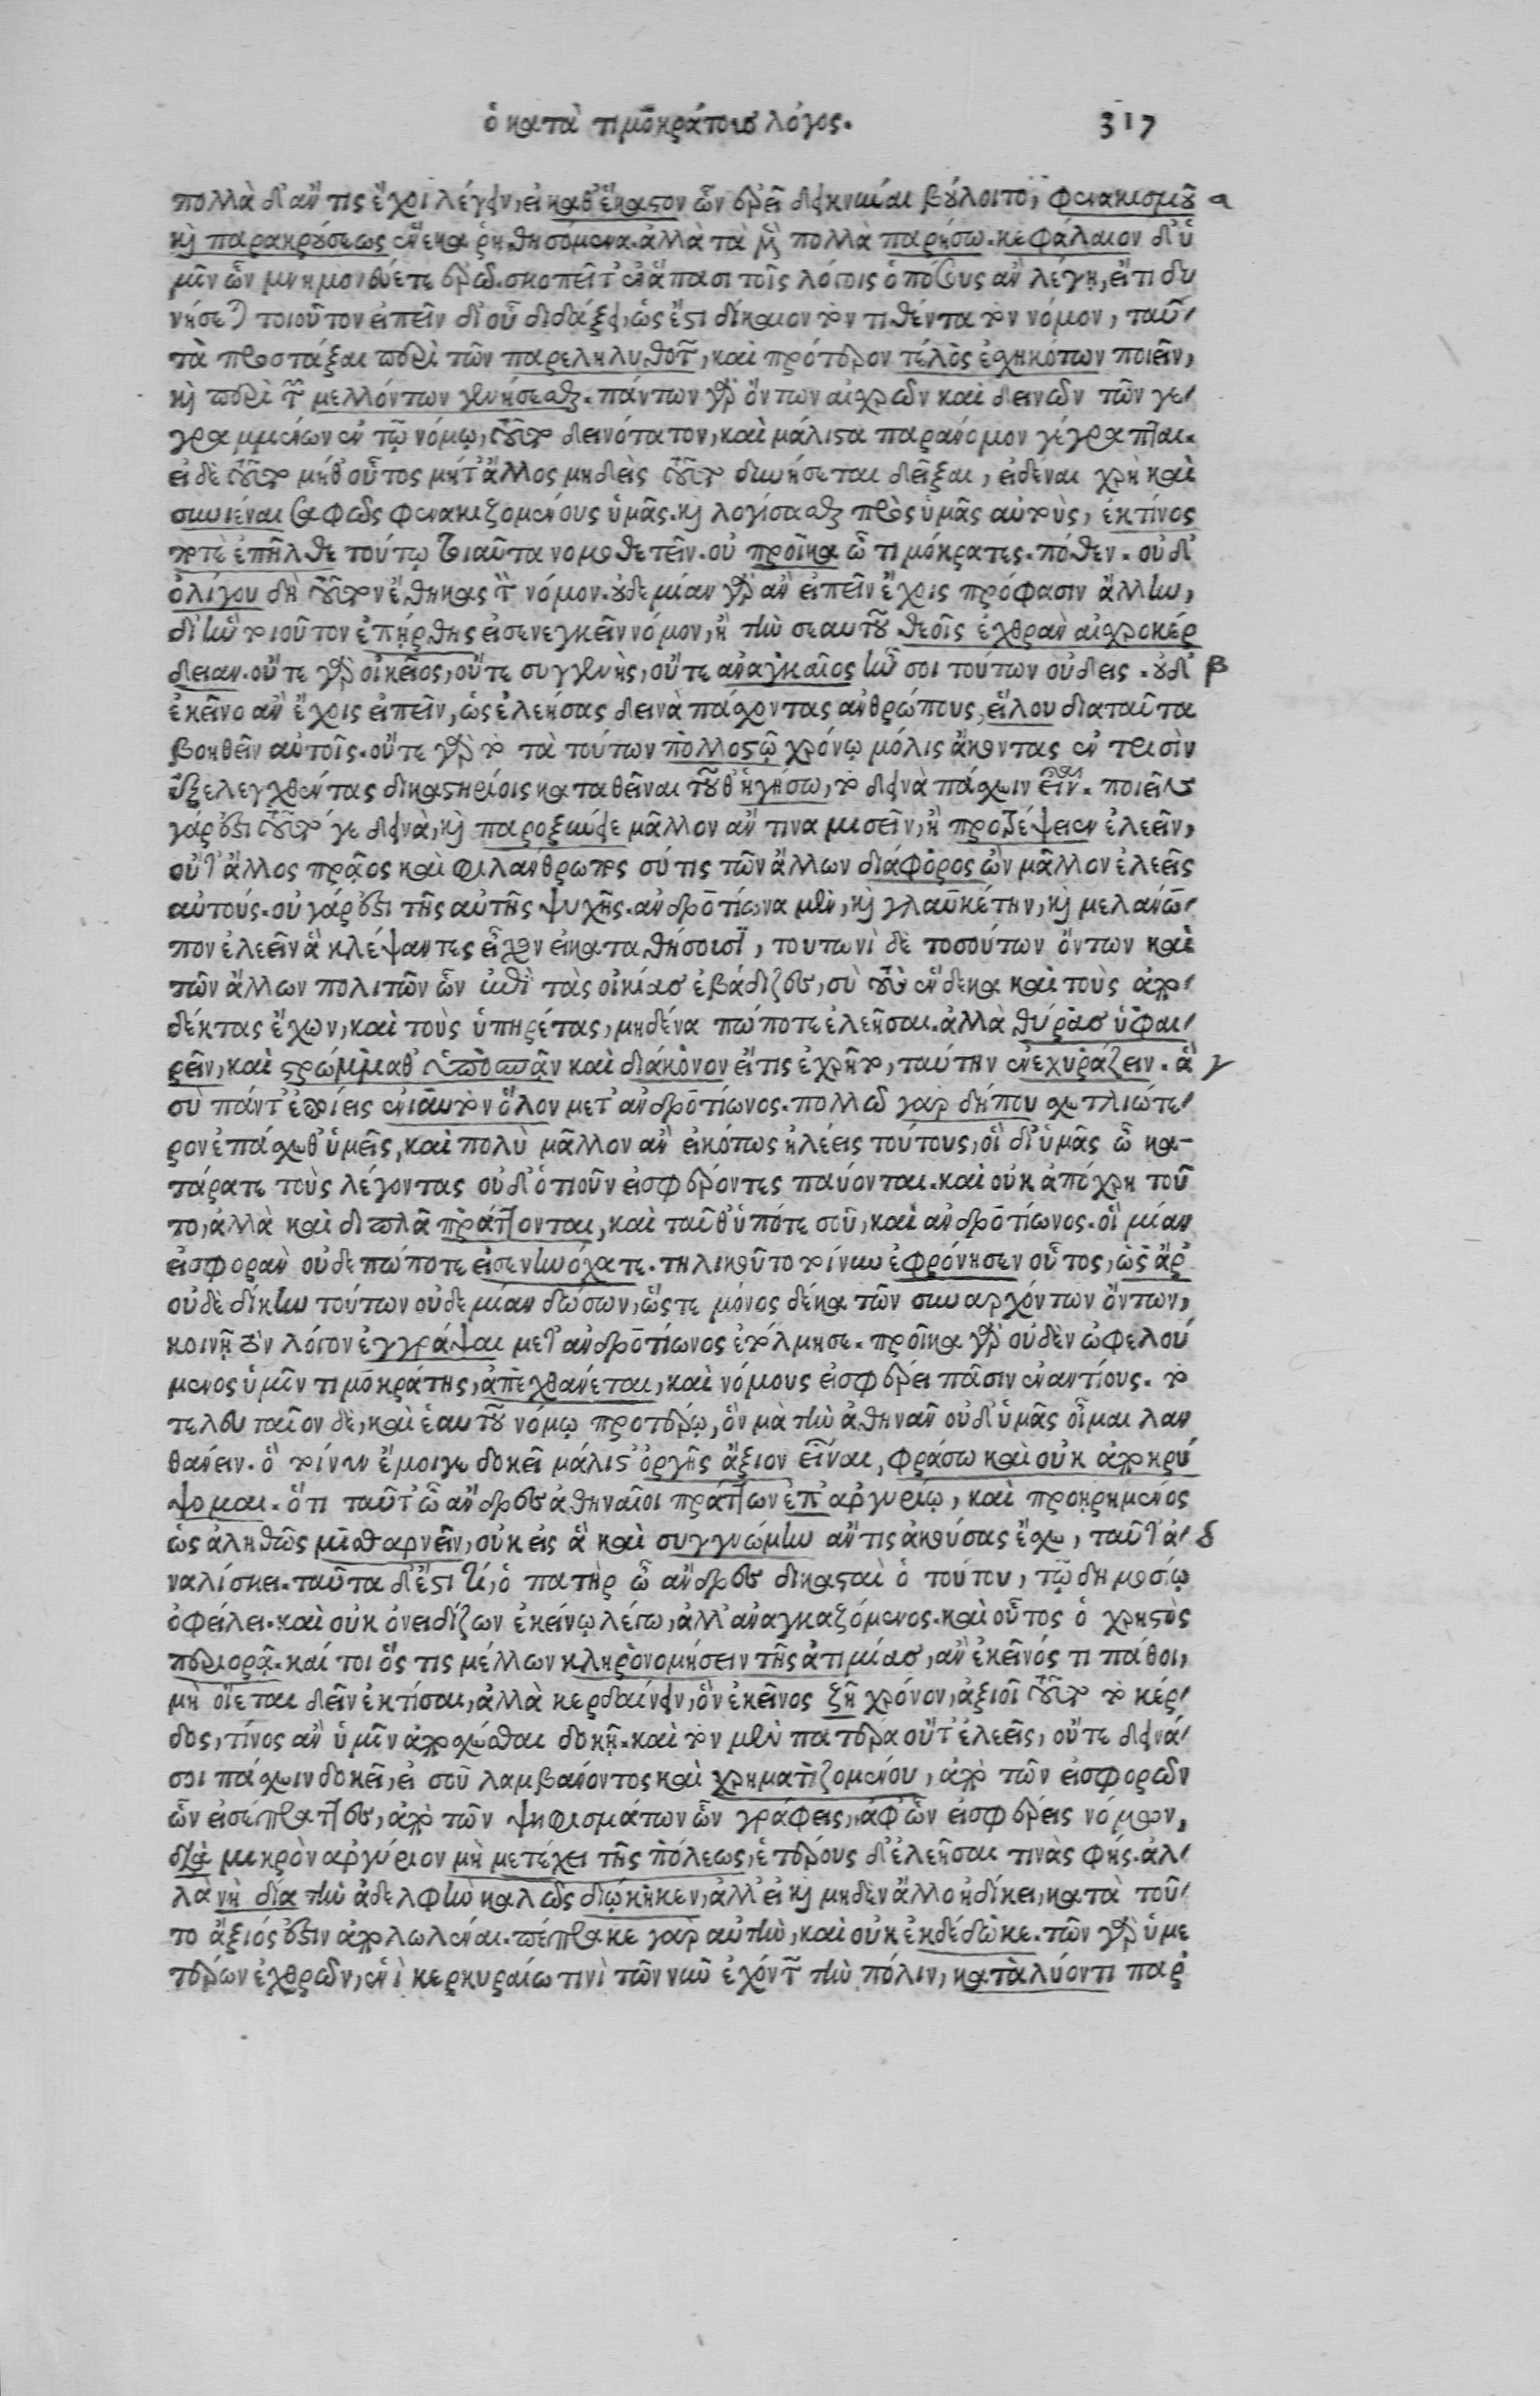 ὁ κατὰ τιμοκράτους λόγος. 317
πολλὰ δ᾽ ἄν τις ἔχοι λέγειν, εἰ καθ᾽ ἕκαστον ὧν φέρει δεικνύναι βούλοιτο, φενακισμοῦ α
καὶ παρακρούσεως ἕνεκα ῥηθησόμενα. ἀλλὰ τὰ μὲν πολλὰ παρήσω. κεφάλαιον δ᾽ ὑ
μῖν ὧν μνημονεύετε ἐρῶ. σκοπεῖτ᾽ ἐν ἅπασι τοῖς λόγοις ὁπόσους ἂν λέγῃ, εἴ τι δυ
νήσεται τοιοῦτον εἰπεῖν δι᾽ οὗ διδάξει, ὡς ἔστι δίκαιον τὸν τιθέντα τὸν νόμον, ταὐ/
τὰ προστάξαι περὶ τῶν παρεληλυθότων, καὶ πρότερον τέλος ἐχηκότων ποιεῖν,
καὶ περὶ τῶν μελλόντων γενήσεσθαι. πάντων γὰρ ὄντων αἰσχρῶν καὶ δεινῶν τῶν γε/
γραμμένων ἐν τῷ νόμῳ, τοῦτο δεινότατον, καὶ μάλιστα παράνομον γέγραπται.
εἰ δὲ τοῦτο μήθ᾽ οὗτος μήτ᾽ ἄλλος μηδεὶς τοῦτο δυνήσεται δεῖξαι, εἰδέναι χρὴ καὶ
συνιέναι σαφῶς φενακιζομένους ὑμᾶς. καὶ λογίσασθαι πρὸς ὑμᾶς αὐτοὺς, ἐκ τίνος
ποτὲ ἐπῆλθε τούτῳ τοιαῦτα νομοθετεῖν. οὐ προῖκα ὦ τιμόκρατες. πόθεν. οὐδ᾽
ὀλίγου δὴ τοῦτον ἔθηκας τὸν νόμον. οὐδεμίαν γὰρ ἂν εἰπεῖν ἔχοις πρόφασιν ἄλλην,
δι᾽ ἣν τοιοῦτον ἐπήρθης εἰσενεγκεῖν νόμον, ἢ τὴν σεαυτοῦ θεοῖς ἐχθρὰν αἰσχροκέρ
δειαν. οὔτε γὰρ οἰκεῖος, οὔτε συγγενὴς, οὔτε ἀναγκαῖος ἦν σοι τούτων οὐδείς. οὐδ᾽ β
ἐκεῖνο ἂν ἔχοις εἰπεῖν, ὡς ἐλεήσας δεινὰ πάσχοντας ἀνθρώπους, εἵλου διὰ ταῦτα
βοηθεῖν αὐτοῖς. οὔτε γὰρ τὸ τὰ τούτων πολλοστῷ χρόνῳ μόλις ἄκοντας ἐν τρισὶν
ἐξελεγχθέντας δικαστηρίοις καταθεῖναι τοῦθ᾽ ἡγήσω, τὸ δεινὰ πάσχειν εἶναι. ποιεῖν
γάρ ἐστι τοῦτό γε δεινὰ, καὶ παροξύνειε μᾶλλον ἄν τινα μισεῖν, ἢ προτρέψειεν ἐλεεῖν,
οὔτ᾽ ἄλλος πρᾷος καὶ φιλάνθρωπος σύ τις τῶν ἄλλων διάφορος ὢν μᾶλλον ἐλεεῖς
αὐτούς. οὐ γάρ ἐστι τῆς αὐτῆς ψυχῆς. ἀνδροτίωνα μὲν, καὶ γλαυκέτην, καὶ μελάνω/
πον ἐλεεῖν ἃ κλέψαντες εἶχον εἰ καταθήσουσι, τουτωνὶ δὲ τοσούτων ὄντων καὶ
τῶν ἄλλων πολιτῶν ὧν ἐπὶ τὰς οἰκίας ἐβάδιζες, σὺ τοὺς ἕνδεκα καὶ τοὺς ἀπο/
δέκτας ἔχων, καὶ τοὺς ὑπηρέτας, μηδένα πώποτε ἐλεῆσαι. ἀλλὰ θύρας ὑφαι/
ρεῖν, καὶ στρώμμαθ᾽ ὑποσπᾷν καὶ διάκονον εἴ τις ἐχρῆτο, ταύτην ἐνεχυράζειν. ἃ γ
σὺ πάντ᾽ ἐποίεις ἐνιαυτὸν ὅλον μετ᾽ ἀνδροτίωνος. πολλῷ γὰρ δήπου σχετλιώτε/
ρον ἐπάσχεθ᾽ ὑμεῖς, καὶ πολὺ μᾶλλον ἂν εἰκότως ἠλέεις τούτους, οἳ δι᾽ ὑμᾶς ὦ κα-
τάρατε τοὺς λέγοντας οὐδ᾽ ὁτιοῦν εἰσφέροντες παύονται. καὶ οὐκ ἀπόχρη τοῦ
το, ἀλλὰ καὶ διπλᾶ πράττονται, καὶ ταῦθ᾽ ὑπό τε σοῦ, καὶ ἀνδροτίωνος. οἳ μίαν
εἰσφορὰν οὐδεπώποτε εἰσενηνόχατε. τηλικοῦτο τοίνυν ἐφρόνησεν οὗτος, ὡς ἄρ᾽
οὐδὲ δίκην τούτων οὐδεμίαν δώσων, ὥστε μόνος δέκα τῶν συναρχόντων ὄντων,
κοινῇ τὸν λόγον ἐγγράψαι μετ᾽ ἀνδροτίωνος ἐτόλμησε. προῖκα γὰρ οὐδὲν ὠφελού
μενος ὑμῖν τιμοκράτης, ἀπεχθάνεται, καὶ νόμους εἰσφέρει πᾶσιν ἐναντίους. τὸ
τελευταῖον δὲ, καὶ ἑαυτοῦ νόμῳ προτέρῳ, ὃν μὰ τὴν ἀθηνᾶν οὐδ᾽ ὑμᾶς οἶμαι λαν
θάνειν. ὃ τοίνυν ἔμοιγε δοκεῖ μάλιστ᾽ ὀργῆς ἄξιον εἶναι, φράσω καὶ οὐκ ἀποκρύ
ψομαι. ὅτι ταῦτ᾽ ὦ ἄνδρες ἀθηναῖοι πράττων ἐπ᾽ ἀργυρίῳ, καὶ προῃρημένος
ὡς ἀληθῶς μισθαρνεῖν, οὐκ εἰς ἃ καὶ συγγνώμην ἄν τις ἀκούσας ἔχοι, ταῦτ᾽ ἀ/ δ
ναλίσκει. ταῦτα δ᾽ ἐστὶ τί, ὁ πατὴρ ὦ ἄνδρες δικασταὶ ὁ τούτου, τῷ δημοσίῳ
ὀφείλει. καὶ οὐκ ὀνειδίζων ἐκείνῳ λέγω, ἀλλ᾽ ἀναγκαζόμενος. καὶ οὗτος ὁ χρηστὸς
περιορᾷ. καί τοι ὅς τις μέλλων κληρονομήσειν τῆς ἀτιμίας, ἂν ἐκεῖνός τι πάθοι,
μὴ οἴεται δεῖν ἐκτίσαι, ἀλλὰ κερδαίνειν, ὃν ἐκεῖνος ζῇ χρόνον, ἀξιοῖ τοῦτο τὸ κέρ/
δος, τίνος ἂν ὑμῖν ἀποσχέσθαι δοκῇ. καὶ τὸν μὲν πατέρα οὔτ᾽ ἐλεεῖς, οὔτε δεινά/
σοι πάσχειν δοκεῖ, εἰ σοῦ λαμβάνοντος καὶ χρηματιζομένου, ἀπὸ τῶν εἰσφορῶν
ὧν εἰσεπραττες, ἀπὸ τῶν ψηφισμάτων ὧν γράφεις, ἀφ᾽ ὧν εἰσφέρεις νόμων,
διὰ μικρὸν ἀργύριον μὴ μετέχει τῆς πόλεως, ἑτέρους δ᾽ ἐλεῆσαι τινὰς φῄς. ἀλ/
λὰ νὴ δία τὴν ἀδελφὴν καλῶς διῴκηκεν, ἀλλ᾽ εἰ καὶ μηδὲν ἄλλο ἠδίκει, κατὰ τοῦ/
το ἄξιός ἐστιν ἀπολωλέναι. πέπρακε γὰρ αὐτὴν, καὶ οὐκ ἐκδέδωκε. τῶν γὰρ ὑμε
τέρων ἐχθρῶν, ἑνὶ κερκυραίῳ τινὶ τῶν νῦν ἐχόντων τὴν πόλιν, καταλύοντι παρ᾽